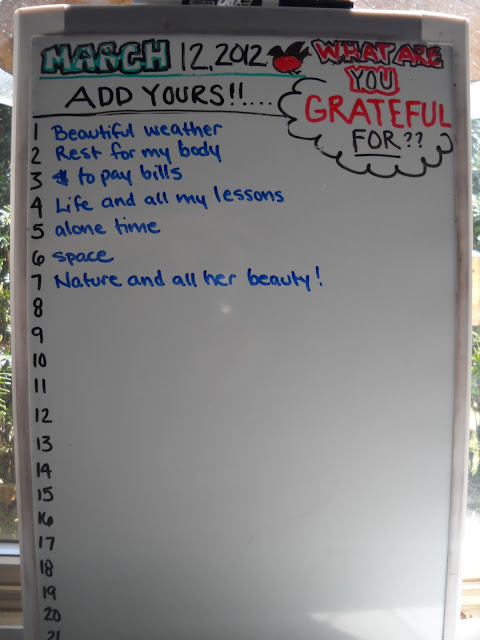 MARCH 12, 2012
WHAT ARE
YOU
GRATEFUL
FOR??
ADD YOURS!!....
1 Beautiful weather
2 Rest for my body
3 $ to pay bills
4 Life and all my lessons
5 alone time
6 space
7 Nature and all her beauty!
8
9
10
11
12
13
14
15
16
17
18
19
20
21